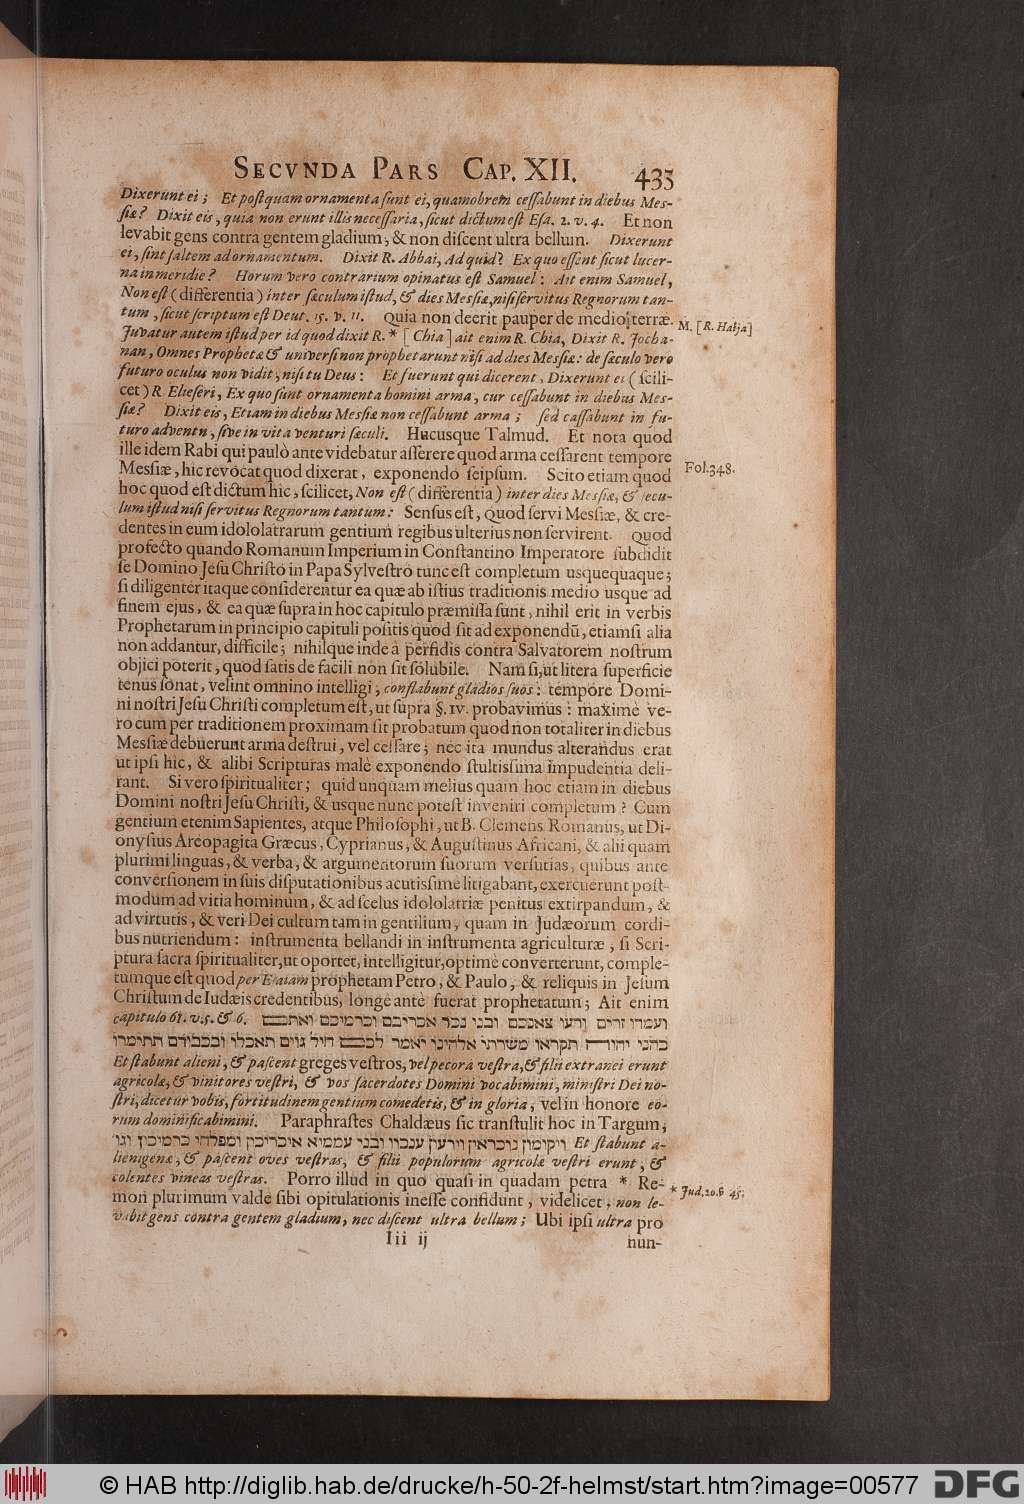 SECVNDA PARS CAP. XII. 435
Dixerunt ei; Et postquam ornamenta sunt ei, quamobrem cessabunt in diebus Mes-
siæ? Dixit eis, quia non erunt illis necessaria, sicut dictum est Esa. 2. v. 4. Et non
levabit gens contra gentem gladium, & non discent ultra bellum. Dixerunt
ei, sint saltem ad ornamentum. Dixit R. Abbai, Ad quid? Ex quo essent sicut lucer-
na in meridie? Horum vero contrarium opinatus est Samuel: Ait enim Samuel,
Non est (differentia) inter sæculum istud, & dies Messiæ, nisi servitus Regnorum tan-
tum, sicut scriptum est Deut. 15. v. 11. Quia non deerit pauper de medio terræ.
M. [R. Halja]
Juvatur autem istud per id quod dixit R. * [Chia] ait enim R. Chia, Dixit R. Jocha-
nan, Omnes Prophetæ & universi non prophetarunt nisi ad dies Messiæ: de sæculo vero
futuro oculus non vidit, nisi tu Deus: Et fuerunt qui dicerent, Dixerunt ei (scili-
cet) R. Elieseri, Ex quo sunt ornamenta homini arma, cur cessabunt in diebus Mes-
siæ? Dixit eis, Etiam in diebus Messiæ non cessabunt arma; sed cassabunt in fu-
turo adventu, sive in vita venturi sæculi. Hucusque Talmud. Et nota quod
ille idem Rabi qui paulò ante videbatur asserere quod arma cessarent tempore
Messiæ, hic revocat quod dixerat, exponendo seipsum. Scito etiam quod
Fol. 348.
hoc quod est dictum hic, scilicet, Non est (differentia) inter dies Messiæ, & secu-
lum istud nisi servitus Regnorum tantum: Sensus est, Quod servi Messiæ, & cre-
dentes in eum idololatrarum gentium regibus ulterius non servirent. Quod
profecto quando Romanum Imperium in Constantino Imperatore subdidit
se Domino Jesu Christo in Papa Sylvestro tunc est completum usquequaque;
si diligenter itaque considerentur ea quæ ab istius traditionis medio usque ad
finem ejus, & ea quæ supra in hoc capitulo præmissa sunt, nihil erit in verbis
Prophetarum in principio capituli positis quod sit ad exponendũ, etiamsi alia
non addantur, difficile; nihilque inde à perfidis contra Salvatorem nostrum
objici poterit, quod satis de facili non sit solubile. Nam si, ut litera superficie
tenus sonat, velint omnino intelligi, conflabunt gladios suos: tempore Domi-
ni nostri Jesu Christi completum est, ut supra §. IV. probavimus: maximè ve-
ro cum per traditionem proximam sit probatum quod non totaliter in diebus
Messiæ debuerunt arma destrui, vel cessare; nec ita mundus alterandus erat
ut ipsi hic, & alibi Scripturas malè exponendo stultissima impudentia deli-
rant. Si vero spiritualiter; quid unquam melius quam hoc etiam in diebus
Domini nostri Jesu Christi, & usque nunc potest inveniri completum? Cum
gentium etenim Sapientes, atque Philosophi, ut B. Clemens Romanus, ut Di-
onysius Areopagita Græcus, Cyprianus, & Augustinus Africani, & alii quam
plurimi linguas, & verba, & argumentorum suorum versutias, quibus ante
conversionem in suis disputationibus acutissime litigabant, exercuerunt post-
modum ad vitia hominum, & ad scelus idololatriæ penitus extirpandum, &
ad virtutis, & veri Dei cultum tam in gentilium, quam in Judæorum cordi-
bus nutriendum: instrumenta bellandi in instrumenta agriculturæ, si Scri-
ptura sacra spiritualiter, ut oportet, intelligitur, optimè converterunt, comple-
tumque est quod per Esaiam prophetam Petro, & Paulo, & reliquis in Jesum
Christum de Iudæis credentibus, longè antè fuerat prophetatum; Ait enim
capitulo 61. v. 5. & 6. ועמדו זרים ורעו צאנכם ובני נכר אכריכם וכרמיכם ואתם
כהני יהוה תקראו משרתי אלהינו יאמר לכם חיל גוים תאכלו ובכבודם תתימרו
Et stabunt alieni, & pascent greges vestros, vel pecora vestra, & filii extranei erunt
agricolæ, & vinitores vestri, & vos sacerdotes Domini vocabimini, ministri Dei no-
stri, dicetur vobis, fortitudinem gentium comedetis, & in gloria, vel in honore eo-
rum dominificabimini. Paraphrastes Chaldæus sic transtulit hoc in Targum,
ויקומון נוכראין וירעון ענכון ובני עממיא איכריכון ומפלחי כרמיכון וגו׳ Et stabunt a-
lienigenæ, & pascent oves vestras, & filii populorum agricolæ vestri erunt, &
colentes vineas vestras. Porro illud in quo quasi in quadam petra * Re-
* Jud. 20. v. 45.
mon plurimum valde sibi opitulationis inesse confidunt, videlicet, non le-
vabit gens contra gentem gladium, nec discent ultra bellum; Ubi ipsi ultra pro
Iii ij
nun-
© HAB http://diglib.hab.de/drucke/h-50-2f-helmst/start.htm?image=00577
DFG